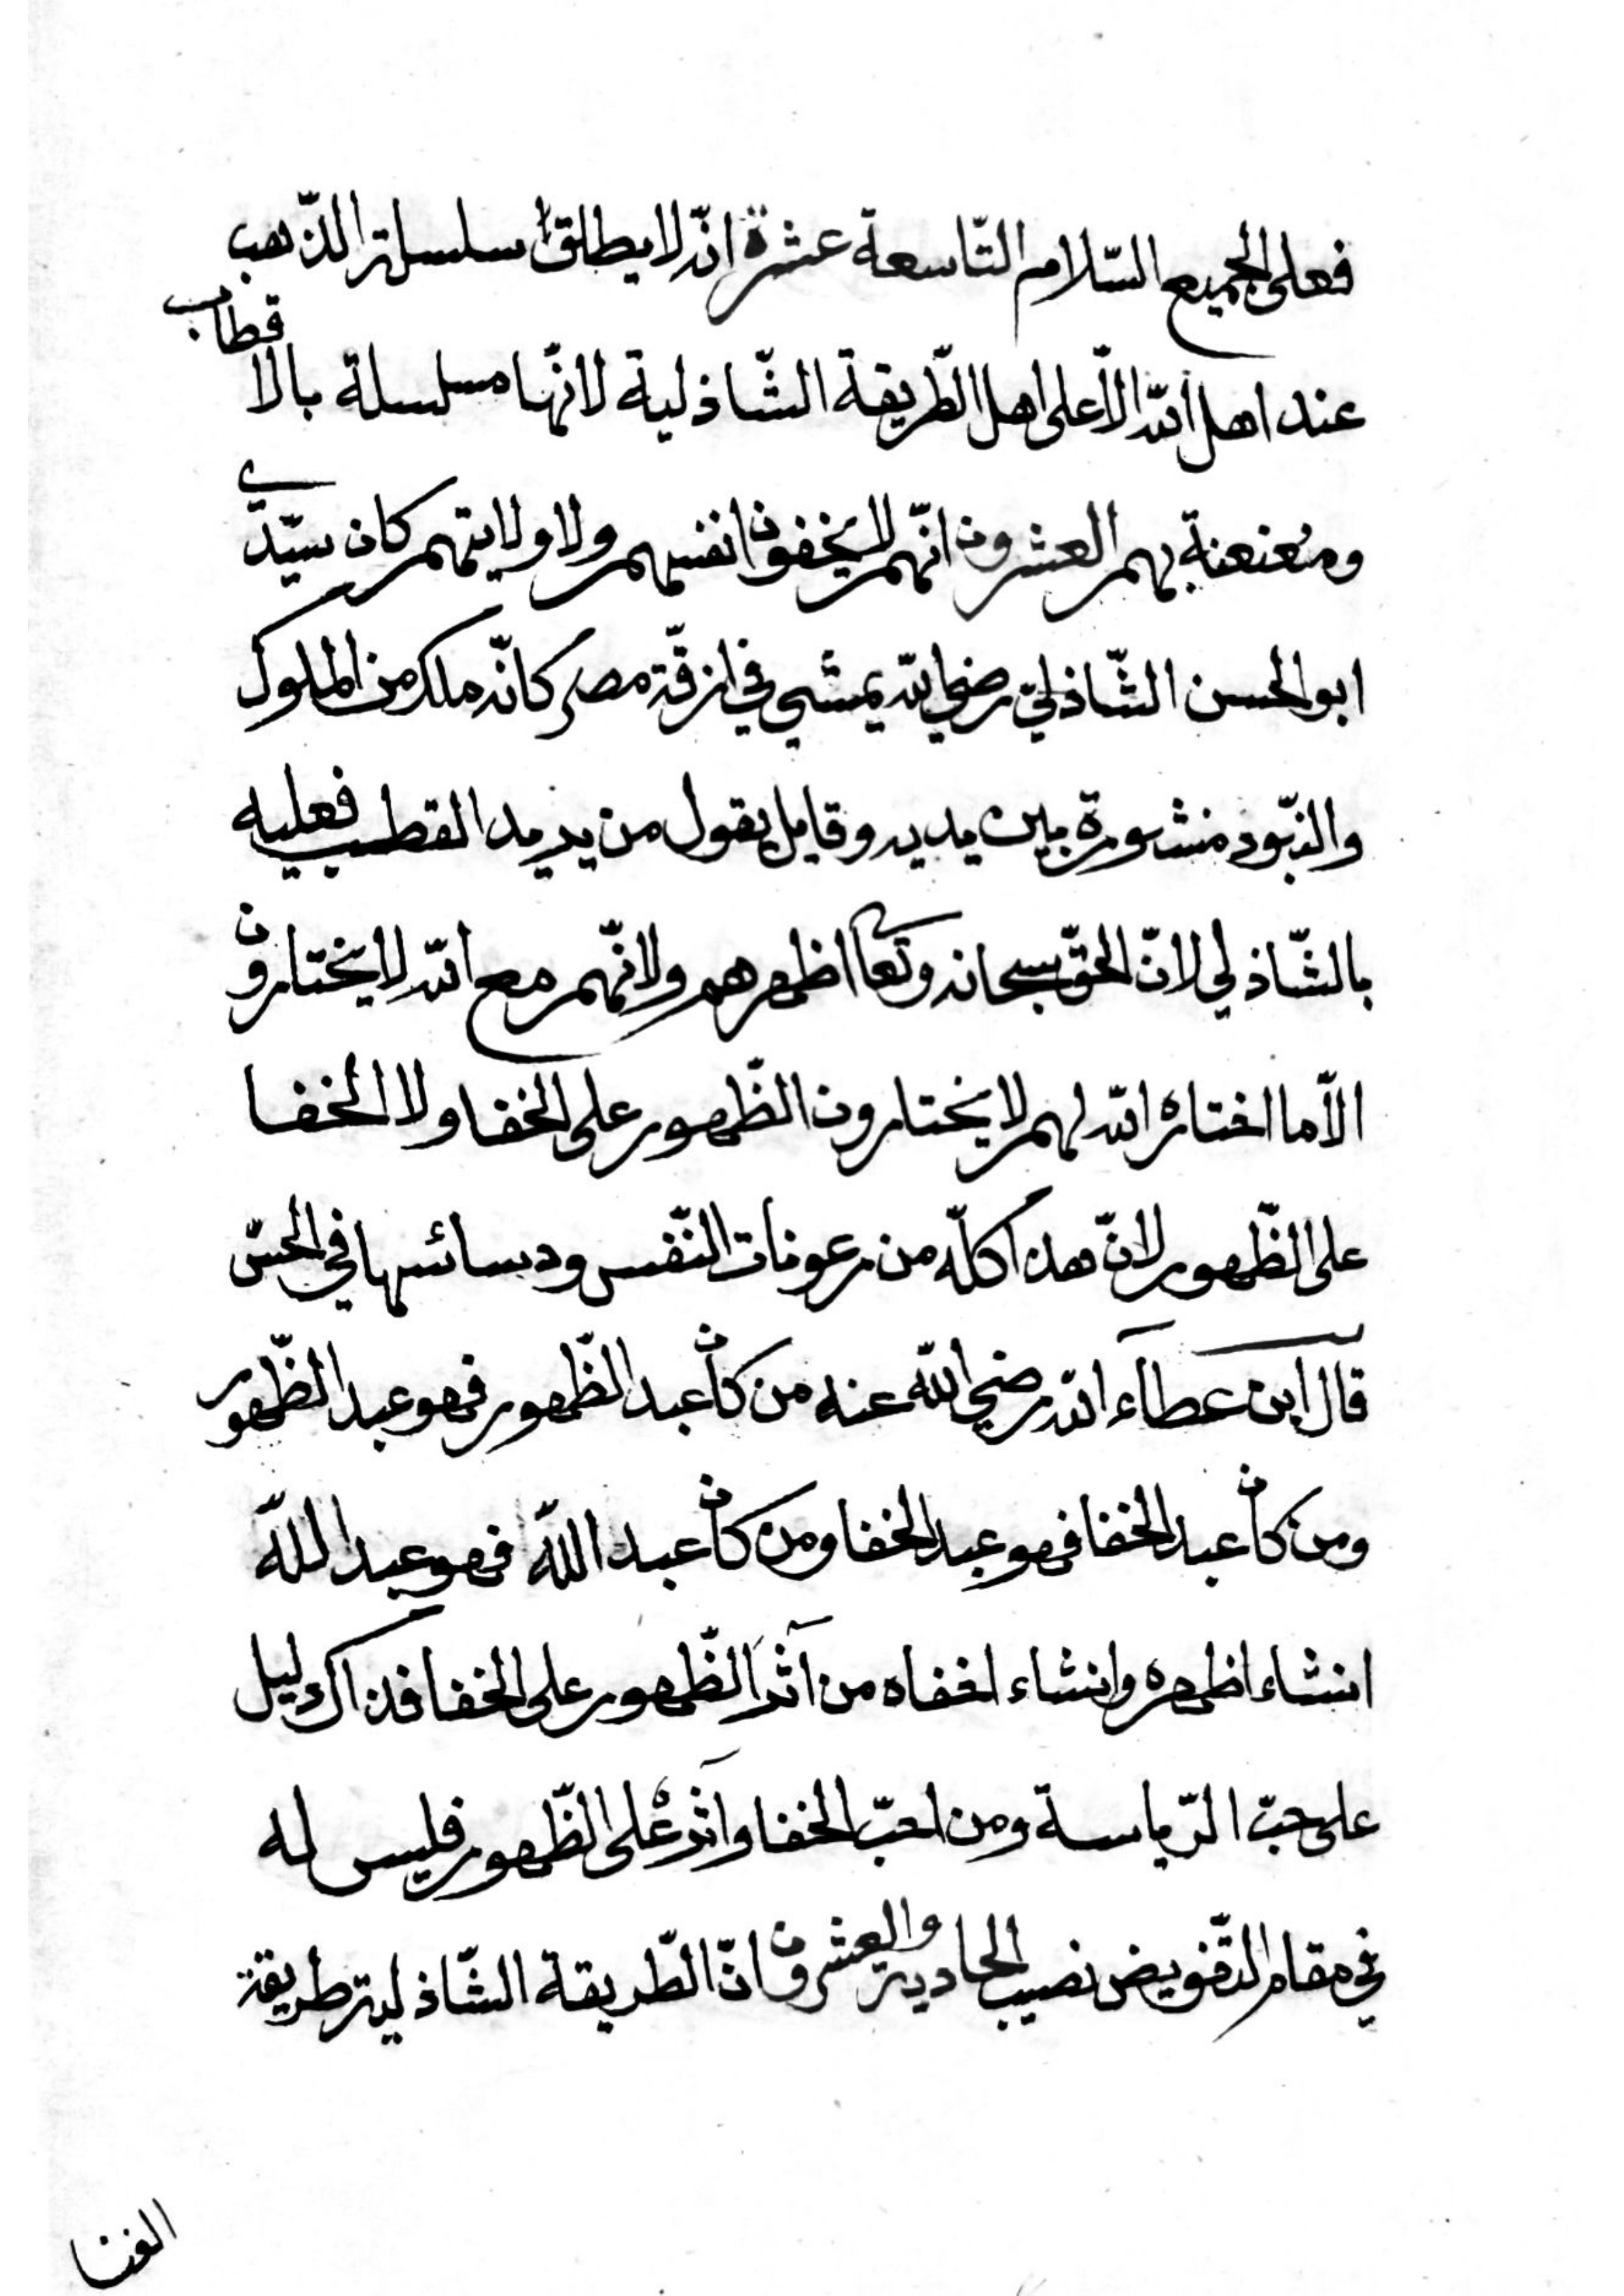 فعلى الجميع السّلام التّاسعة عشرة انّه لا يطلق سلسلة الذّهب
عند اهل الله الّا على اهل الطّريقة الشّاذلية لانّها مسلسلة بالاقطاب
ومعنعنة بهم العشرون انّهم لا يخفون انفسهم ولا ولايتهم كان سيّدي
ابو الحسن الشّاذليّ رضي الله يمشي في ازقّة مصر كانّه ملك من الملوك
والنبّود منشورة بين يديه وقايل يقول من يريد القطب فعليه
بالشّاذلي لانّ الحقّ سبحانه وتعا اظهرهم ولانّهم مع الله لا يختارون
الّا ما اختاره الله لهم لا يختارون الظّهور على الخفا ولا الخفا
على الظّهور لانّ هذا كلّه من رعونات النّفس ودسائسها في الحسّ
قال ابن عطاآء الله رضي الله عنه من كان عبد الظّهور فهو عبد الظّهور
ومن كان عبد الخفا فهو عبد الخفا ومن كان عبد اللّه فهو عبد اللّه
انشاء اظهره وانشاء اخفاه من آثر الظّهور على الخفا فذاك دليل
على حبّ الرّياسة ومن احبّ الخفا واثره على الظّهور فليس له
في مقام التّفويض نصيب الحادية والعشرون انّ الطّريقة الشّاذلية طريقة
الغنا